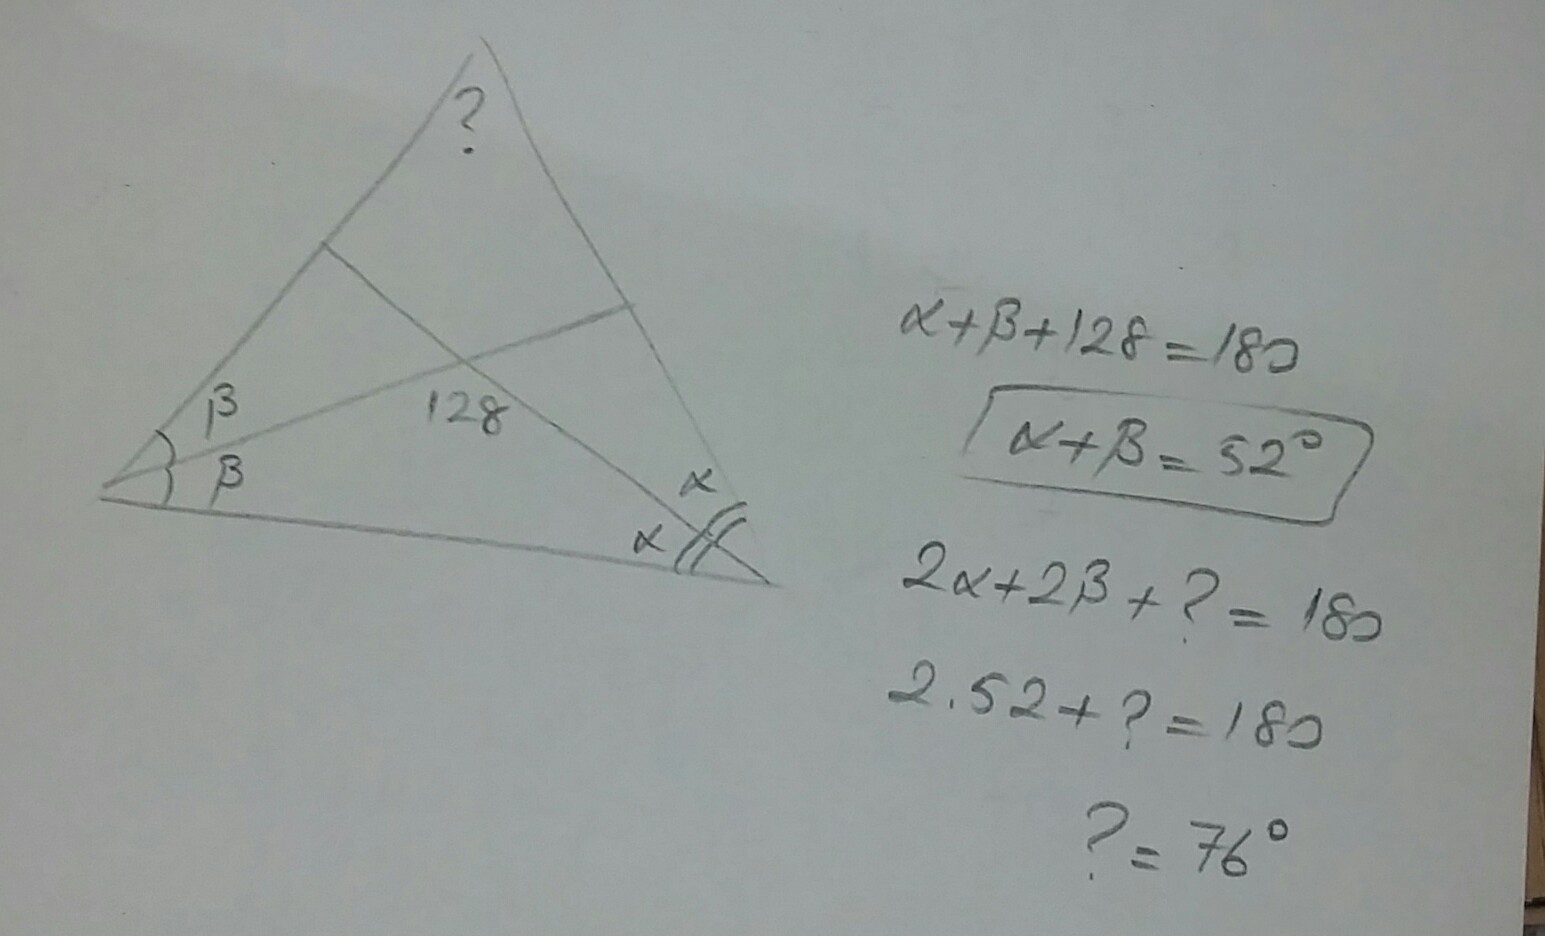 ?
β
β
128
α
α
α+β+128=180
α+β=52°
2α+2β+?=180
2.52+?=180
?=76°